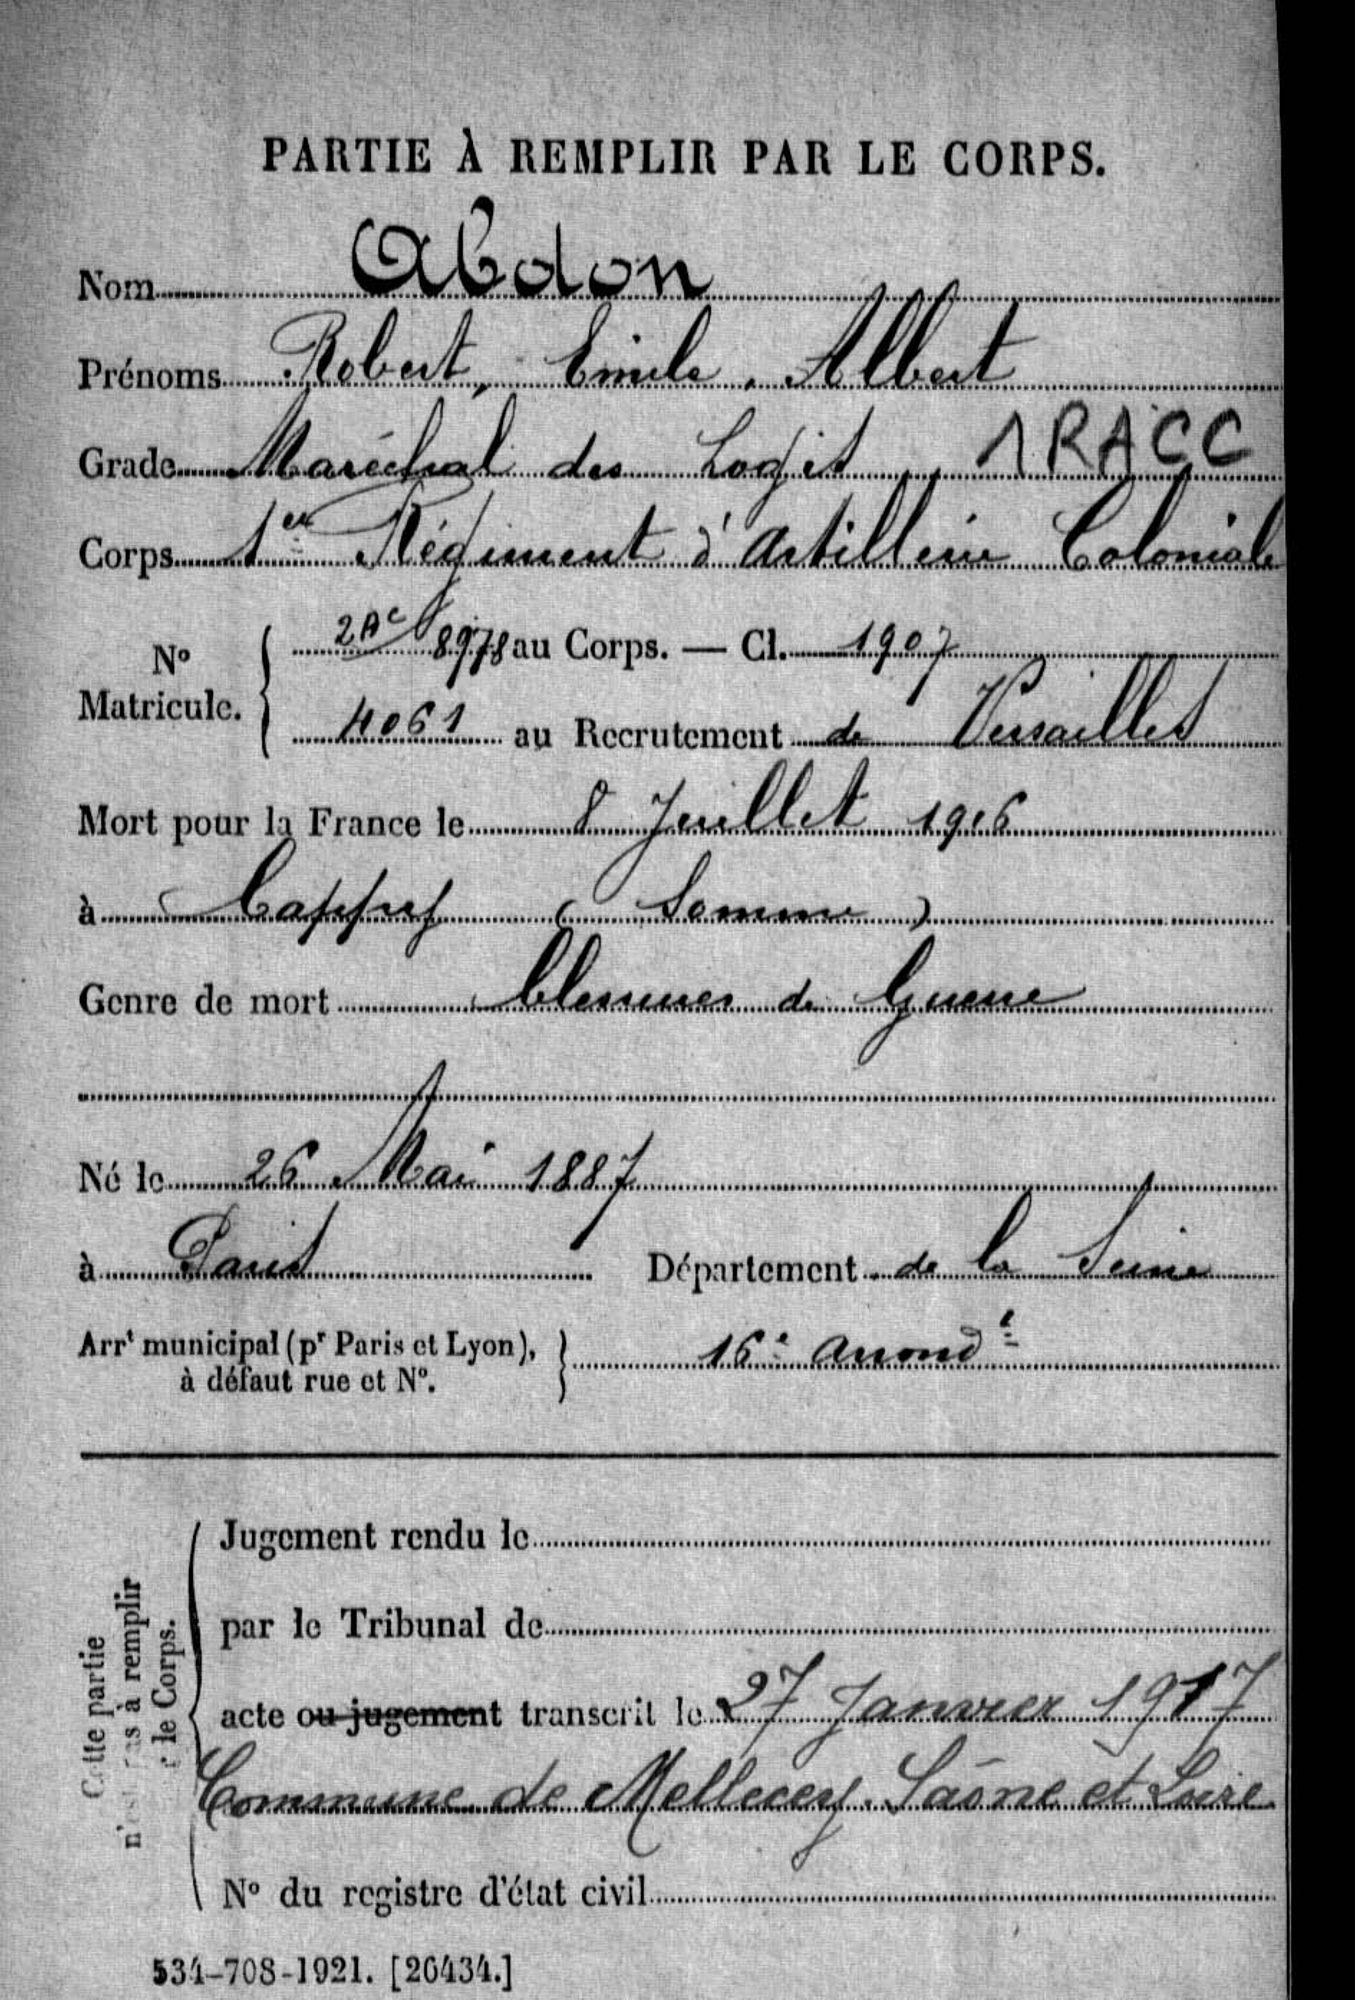 PARTIE À REMPLIR PAR LE CORPS.
Nom Abdon
Prénoms Robert, Emile, Albert
Grade Maréchal des Logis 1 RACC
Corps 1er Régiment d'Artillerie Coloniale
No Matricule. { 2Ac 8978 au Corps. — Cl. 1907
4061 au Recrutement de Versailles
Mort pour la France le 8 Juillet 1916
à Cappy (Somme)
Genre de mort blessures de Guerre
Né le 26 Mai 1887
à Paris Département de la Seine
Arrt municipal (pr Paris et Lyon), à défaut rue et No. } 16e Arrondt
Cette partie n'est pas à remplir le Corps.
Jugement rendu le
par le Tribunal de
acte ou jugement transcrit le 27 Janvier 1917
Commune de Mellecey. Saône et Loire
No du registre d'état civil
534-708-1921. [26434.]